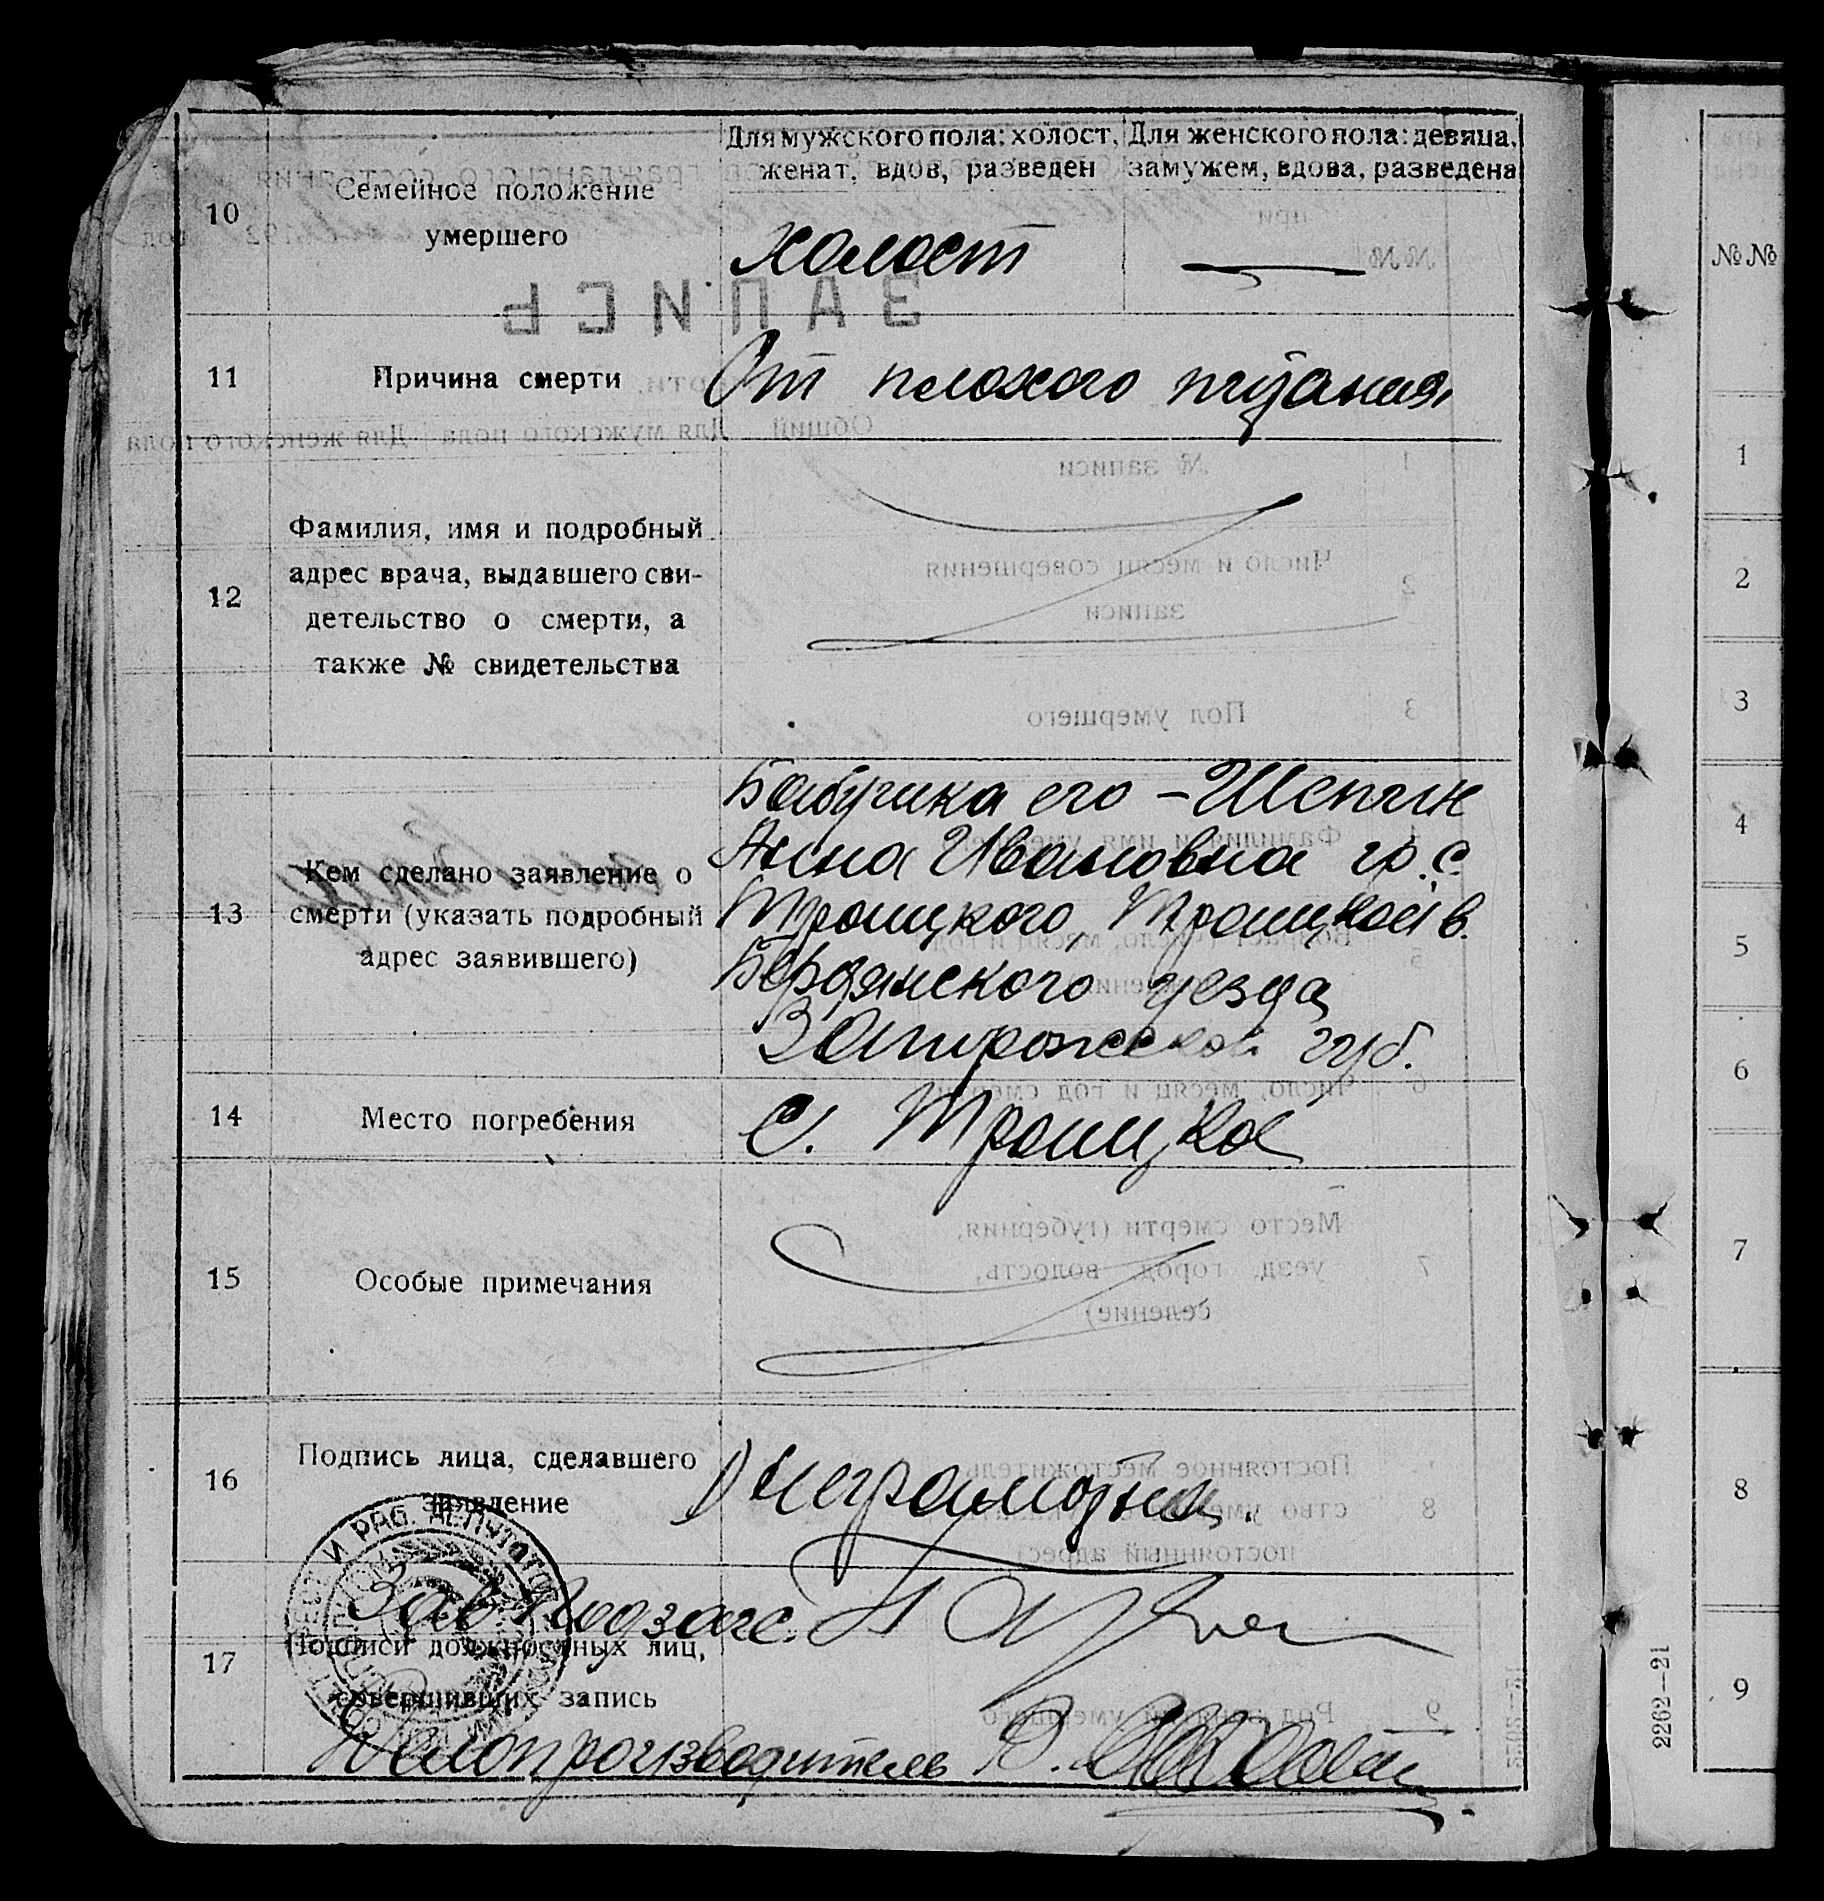 Для мужского пола: холост, женат, вдов, разведен
Для женского пола: девица, замужем, вдова, разведена
10
Семейное положение
умершего
холост
11
Причина смерти
От плохого питания
12
Фамилия, имя и подробный
адрес врача, выдавшего сви-
детельство о смерти, а
также № свидетельства
13
Кем сделано заявление о
смерти (указать подробный
адрес заявившего)
Бабушка его –
Анна Ивановна гр. с.
Троицкого, Троицкой в.
Бердянского уезда
Запорожской губ.
14
Место погребения
с. Троицкое
15
Особые примечания
16
Подпись лица, сделавшего
заявление
неграмотна.
17
Подписи должностных лиц,
совершивших запись
Зав Подзагс.
Делопроизводитель В.
И РАБ. ДЕПУТАТОВ
№№
1
2
3
4
5
6
7
8
9
2262—21